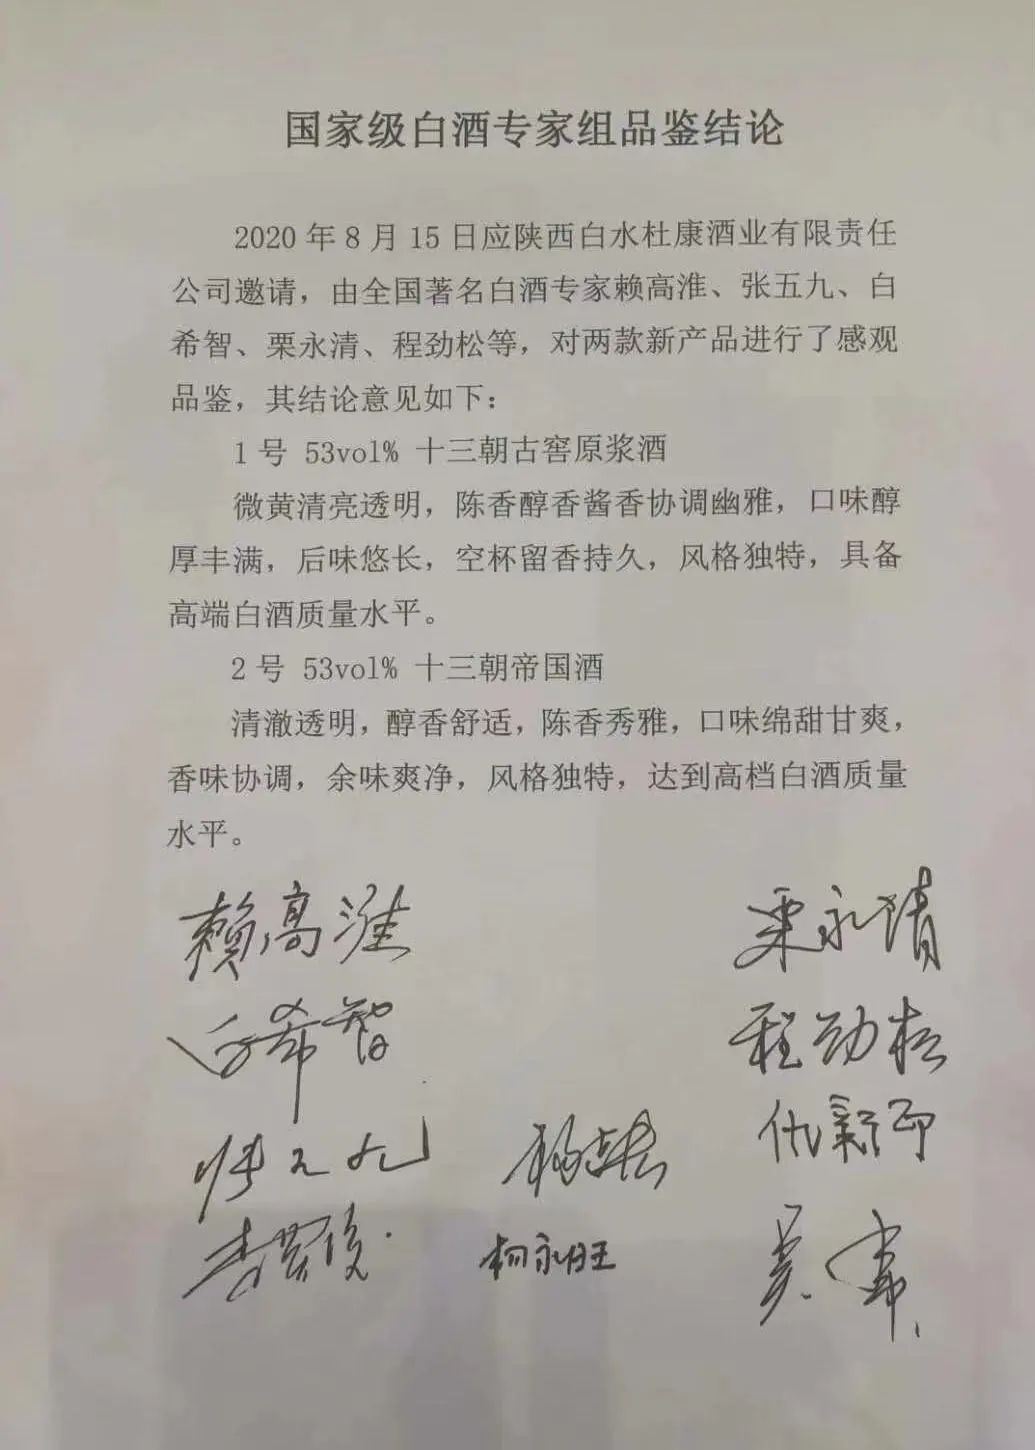 国家级白酒专家组品鉴结论
2020年8月15日应陕西白水杜康酒业有限责任
公司邀请，由全国著名白酒专家赖高淮、张五九、白
希智、栗永清、程劲松等，对两款新产品进行了感观
品鉴，其结论意见如下：
1号 53vol% 十三朝古窖原浆酒
微黄清亮透明，陈香醇香酱香协调幽雅，口味醇
厚丰满，后味悠长，空杯留香持久，风格独特，具备
高端白酒质量水平。
2号 53vol% 十三朝帝国酒
清澈透明，醇香舒适，陈香秀雅，口味绵甜甘爽，
香味协调，余味爽净，风格独特，达到高档白酒质量
水平。
赖高淮 栗永清
白希智 程劲松
张五九